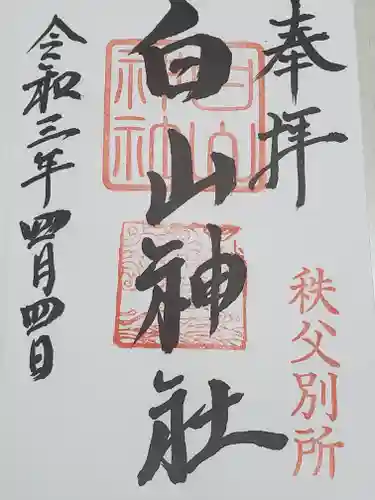 奉拝
秩父別所
白山神社
白山神社
令和三年四月四日